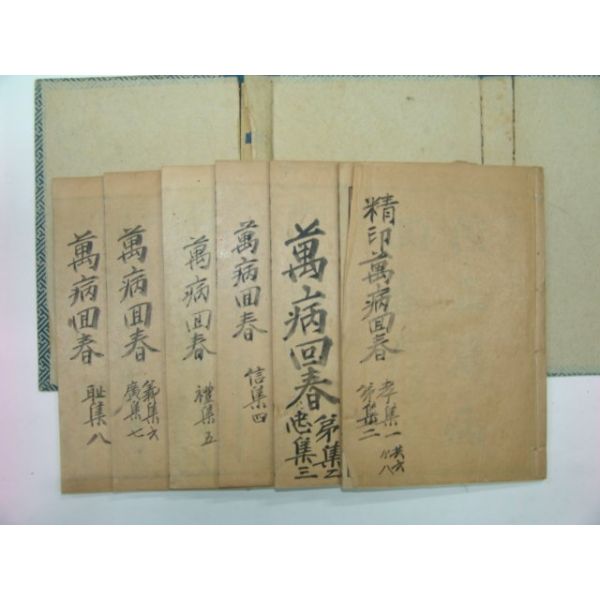 精印萬病回春
孝集一
弟集二
共六
萬病回春
弟集二
忠集三
萬病回春
信集四
萬病回春
禮集五
萬病回春
義集六
廉集七
萬病回春
耻集八